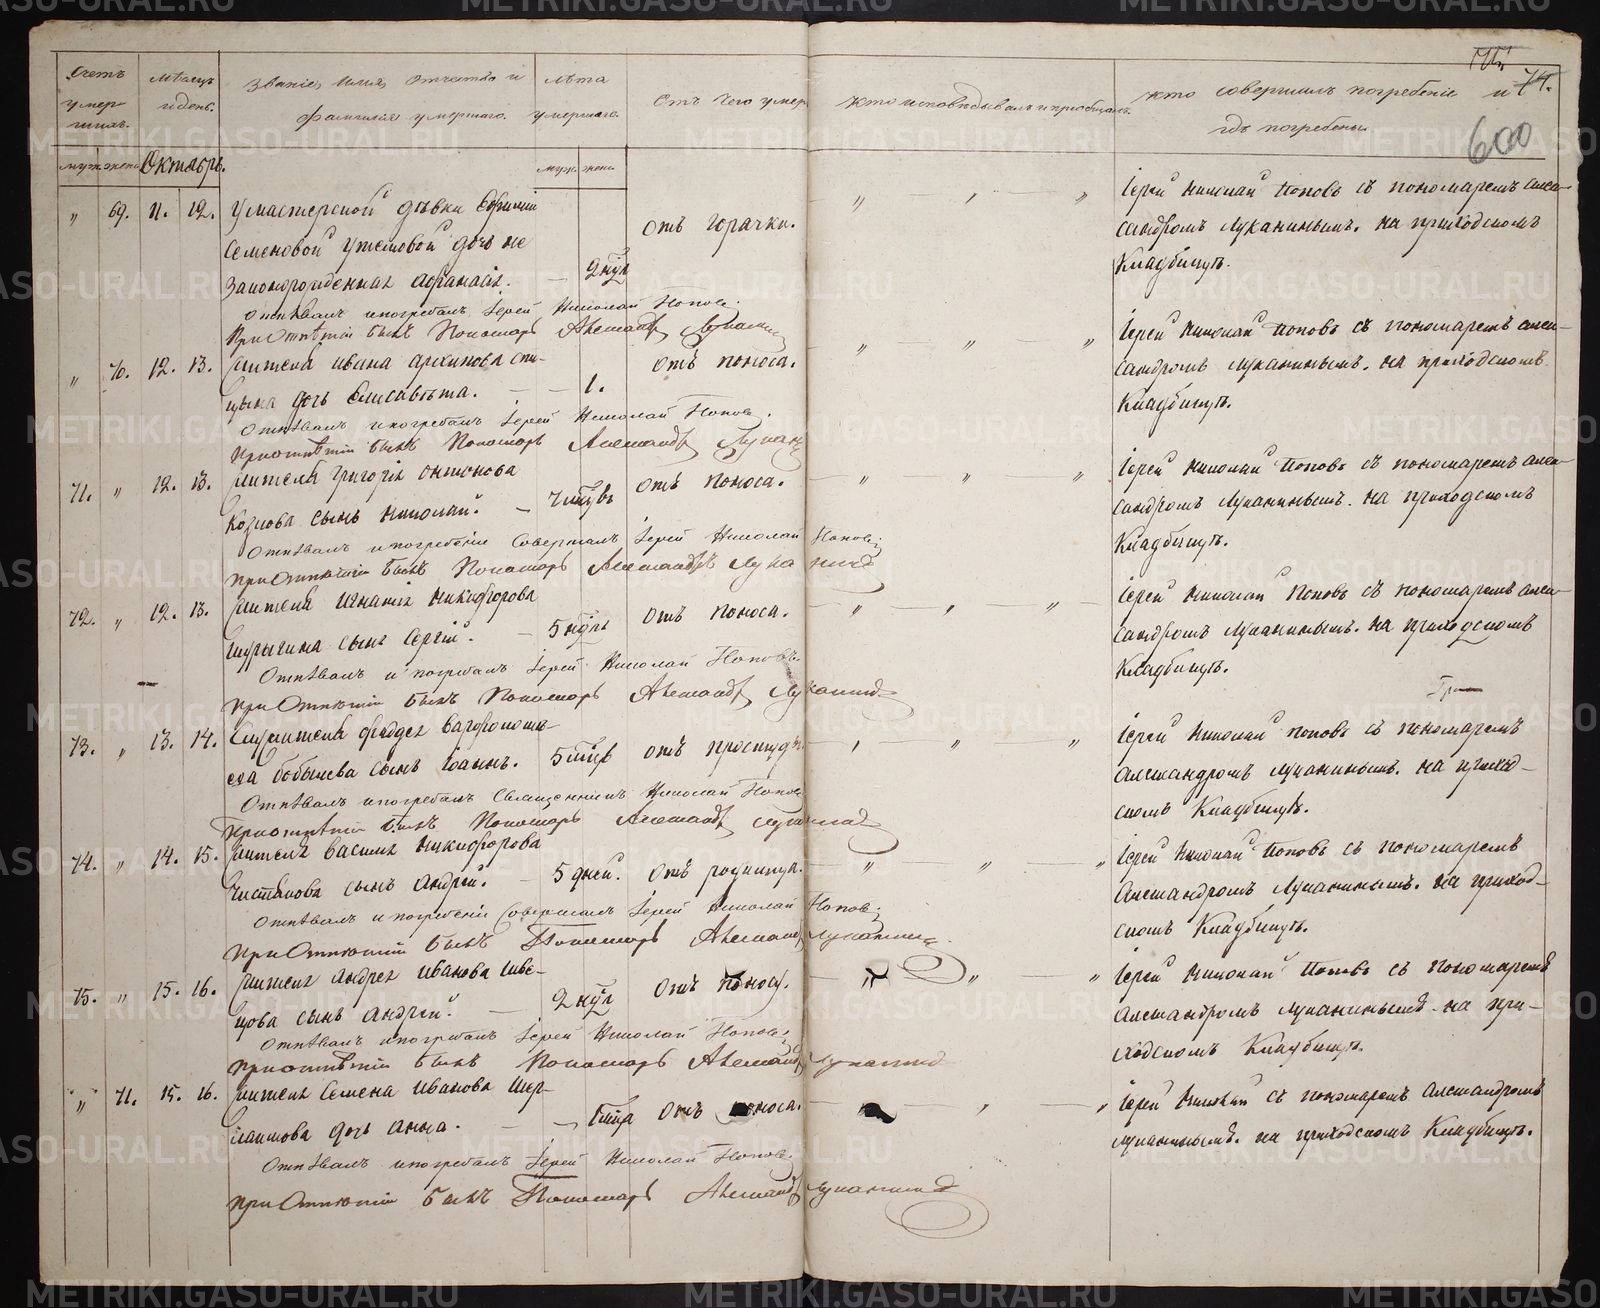 METRIKI.GASO-URAL.RU
Счетъ умершихъ.
Мѣсяцъ и день.
Званіе, Имя, Отчество и Фамилія умершаго.
Лѣта умершаго.
Отъ чего умеръ
Кто исповѣдывалъ и пріобщалъ.
Кто совершилъ погребеніе и гдѣ погребены.
74.
600
муж. жен. Октябрь. муж. жен.
„ 69. 11. 12. дѣвки
Семеновой дочь не
законорожденная Афанасія. — 2 нѣд. Отъ горячки. „ „ „
Іерей Николай Поповъ съ пономаремъ Алек-
сандромъ Луканинымъ. на приходскомъ
Кладбищѣ.
Отпѣвалъ и погребалъ Іерей Николай Поповъ.
При Отпѣтіи былъ Пономарь Александръ Луканинъ
„ 70. 12. 13. Жителя Ивана Архипова Спи-
цына дочь Елисавета. — 1. Отъ поноса. „ „ „
Іерей Николай Поповъ съ пономаремъ Алек-
сандромъ Луканинымъ. на приходскомъ
Кладбищѣ.
Отпѣвалъ и погребалъ Іерей Николай Поповъ.
При отпѣтіи былъ Пономарь Александръ Лукан
71. „ 12. 13. Жителя Григорія Антонова
Козлова сынъ Николай. — Отъ поноса. „ „ „
Іерей Николай Поповъ съ пономаремъ Алек-
сандромъ Луканинымъ. на приходскомъ
Кладбищѣ.
Отпѣвалъ и погребеніе Совершалъ Іерей Николай Поповъ
При Отпѣтіи былъ Пономарь Александръ Луканинъ
72. „ 12. 13. Жителя Игнатія Никифорова
сынъ Сергій. — 5 нѣдль Отъ поноса. „ „ „
Іерей Николай Поповъ съ пономаремъ Алек-
сандромъ Луканинымъ. на приходскомъ
Кладбищѣ.
Отпѣвалъ и погребалъ Іерей Николай Поповъ
при Отпѣтіи былъ Пономарь Александръ Луканинъ
73. „ 13. 14. Жителя Фаддея Варфоломе-
ева Бобылева сынъ Іоаннъ. 5 Отъ простуды. „ „ „
Іерей Николай Поповъ съ пономаремъ
Александромъ Луканинымъ. на приход-
скомъ Кладбищѣ.
Отпѣвалъ и погребалъ Священникъ Николай Поповъ
При отпѣтіи былъ Пономарь Александръ Луканинъ
74. „ 14. 15. Жителя Василія Никифорова
Чистякова сынъ Андрей. — 5 дней. Отъ родимца. „ „ „
Іерей Николай Поповъ съ пономаремъ
Александромъ Луканинымъ. на приход-
скомъ Кладбищѣ.
Отпѣвалъ и погребеніе Совершалъ Іерей Николай Поповъ
при Отпѣтіи былъ Пономарь Александръ Луканинъ.
75. „ 15. 16. Жителя Андрея Иванова Шве-
цова сынъ Андрей. — 2 нѣд. Отъ поноса. „ „ „
Іерей Николай Поповъ съ пономаремъ
Александромъ Луканинымъ. на при-
ходскомъ Кладбищѣ.
Отпѣвалъ и погребалъ Іерей Николай Поповъ
При отпѣтіи былъ Пономарь Александръ Луканинъ
„ 71. 15. 16. Жителя Семена Иванова
дочь Анна. — Отъ поноса. „ „
Іерей Николай съ пономаремъ Александромъ
Луканинымъ. на приходскомъ Кладбищѣ.
Отпѣвалъ и погребалъ Іерей Николай Поповъ.
при Отпѣтіи былъ Пономарь Александръ Луканинъ